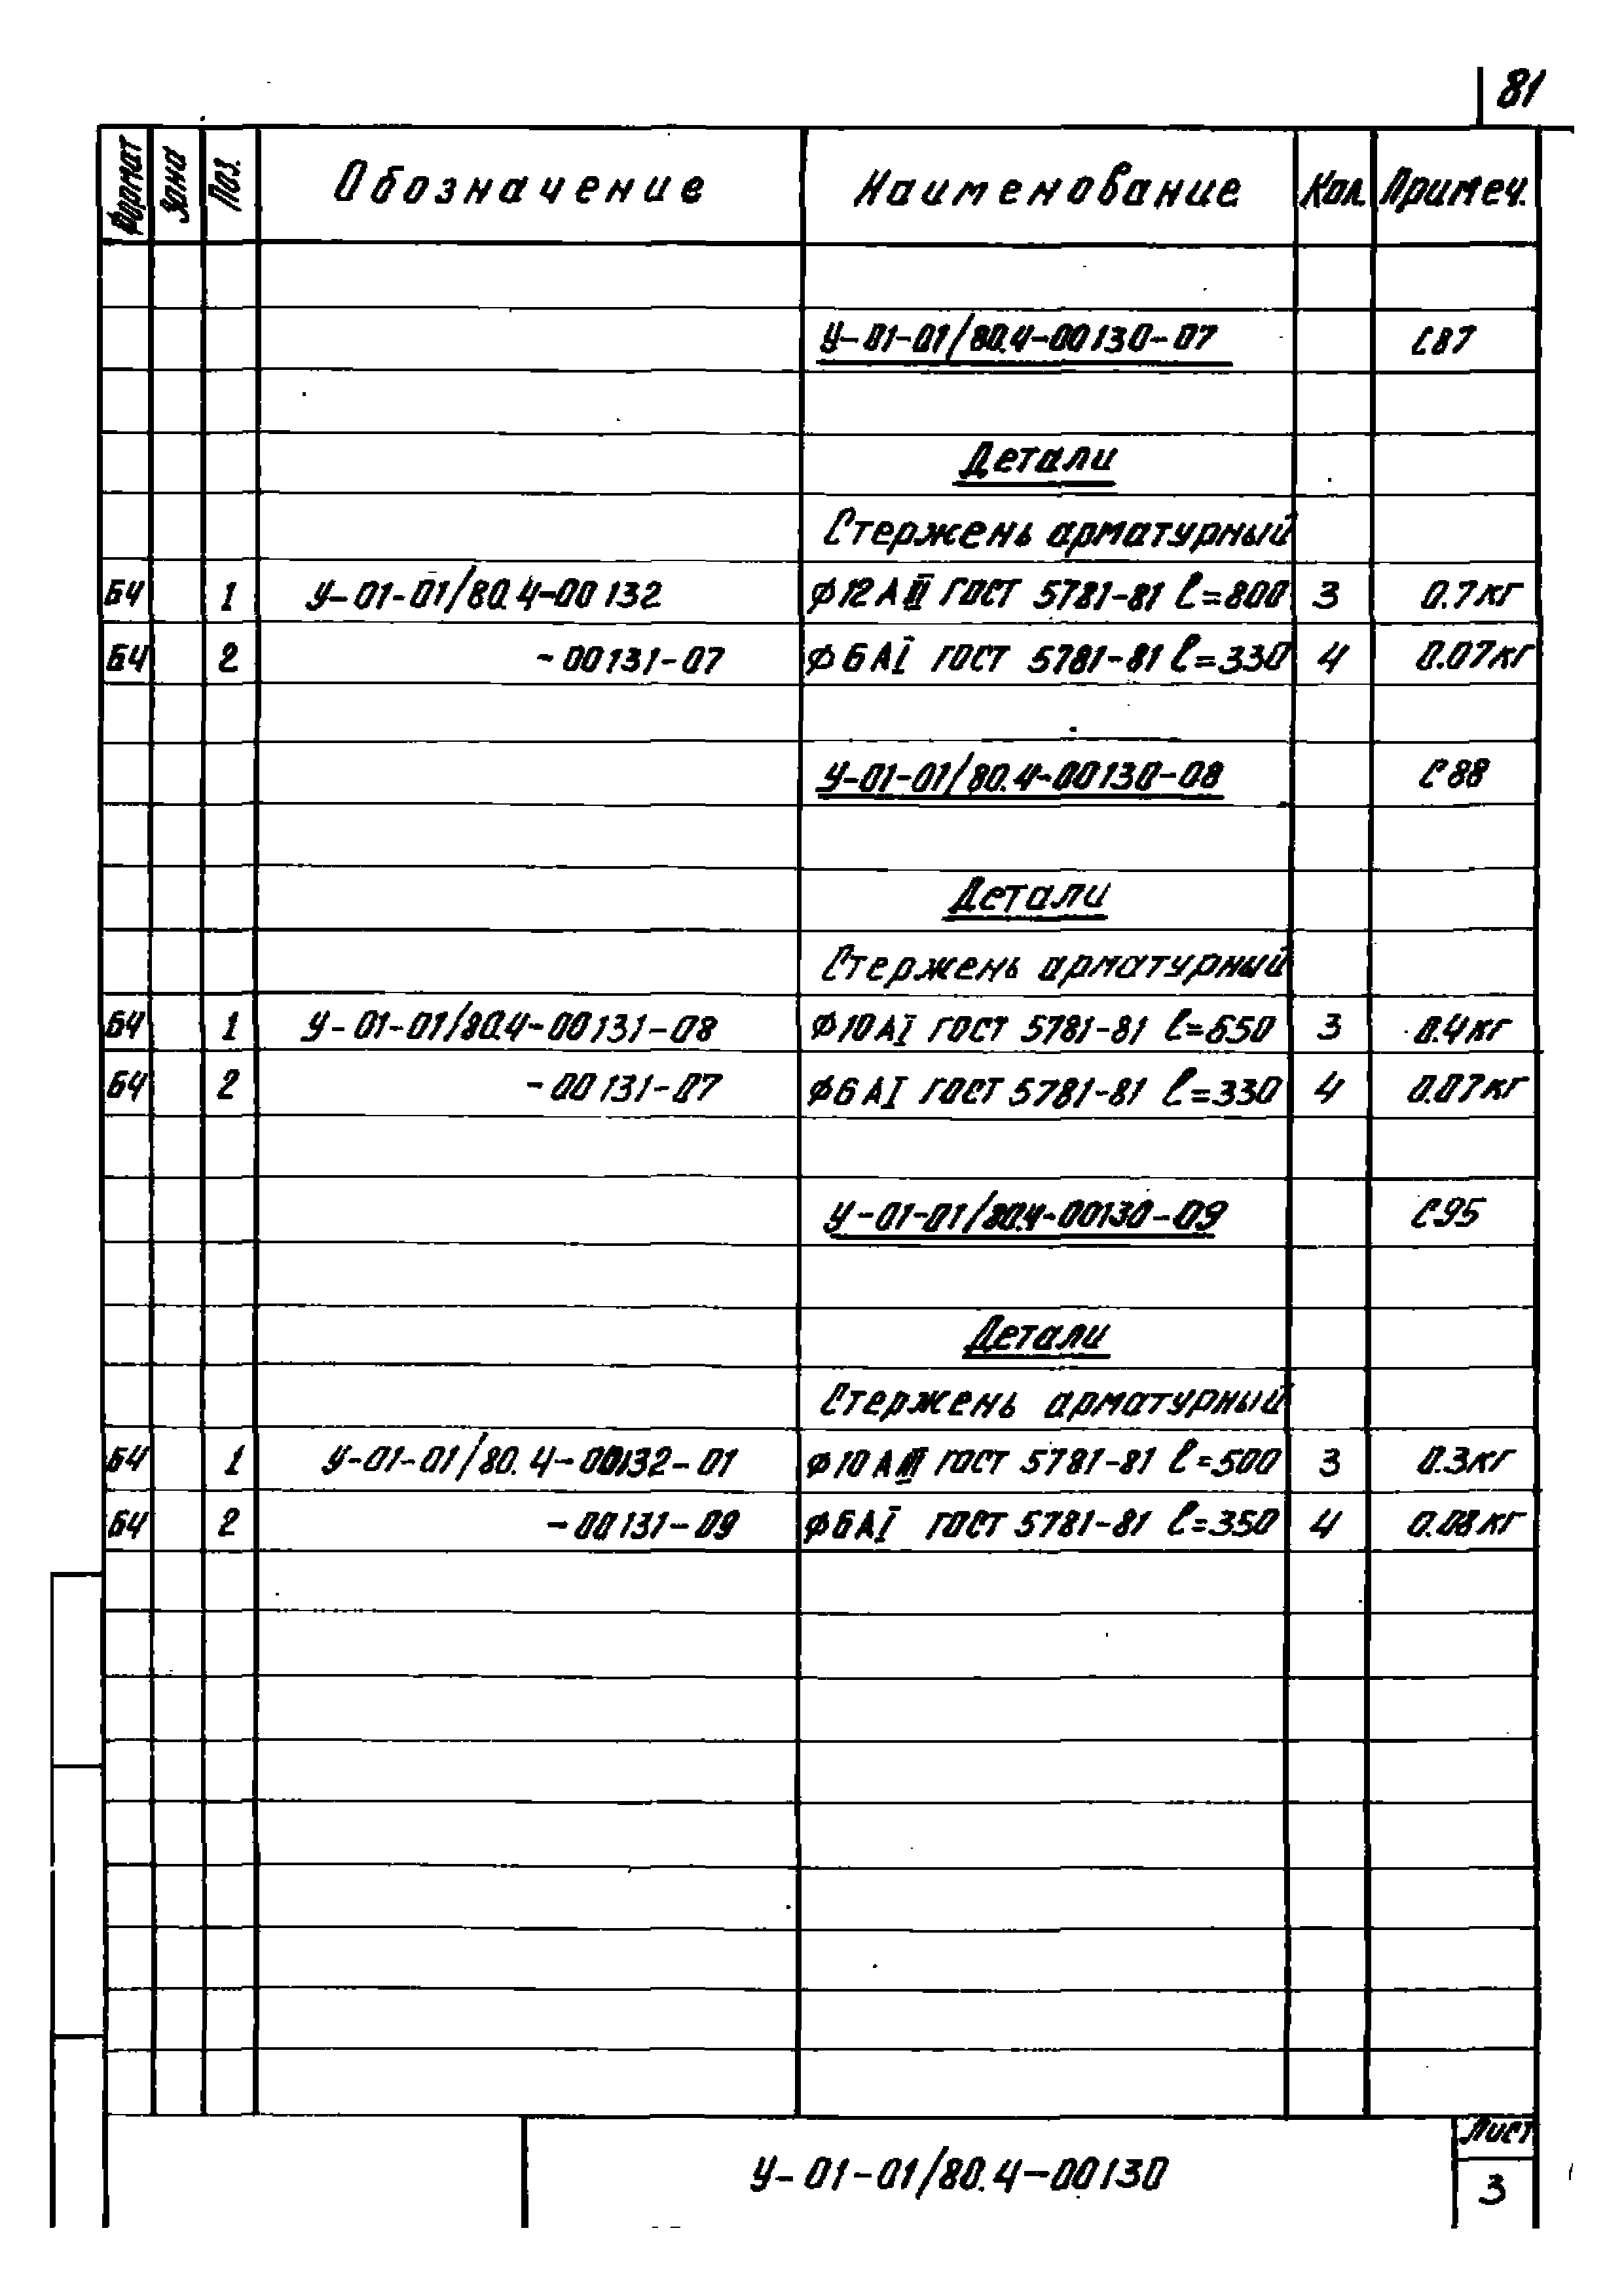 81
Формат Зона Поз. Обозначение Наименование Кол. Примеч.
У-01-01/80.4-00130-07 С87
Детали
Стержень арматурный
БЧ 1 У-01-01/80.4-00132 ф12АIII ГОСТ 5781-81 l=800 3 0.7кг
БЧ 2 -00131-07 ф6АI ГОСТ 5781-81 l=330 4 0.07кг
У-01-01/80.4-00130-08 С88
Детали
Стержень арматурный
БЧ 1 У-01-01/80.4-00131-08 ф10АI ГОСТ 5781-81 l=650 3 0.4кг
БЧ 2 -00131-07 ф6АI ГОСТ 5781-81 l=330 4 0.07кг
У-01-01/80.4-00130-09 С95
Детали
Стержень арматурный
БЧ 1 У-01-01/80.4-00132-01 ф10АIII ГОСТ 5781-81 l=500 3 0.3кг
БЧ 2 -00131-09 ф6АI ГОСТ 5781-81 l=350 4 0.08кг
У-01-01/80.4-00130
Лист
3